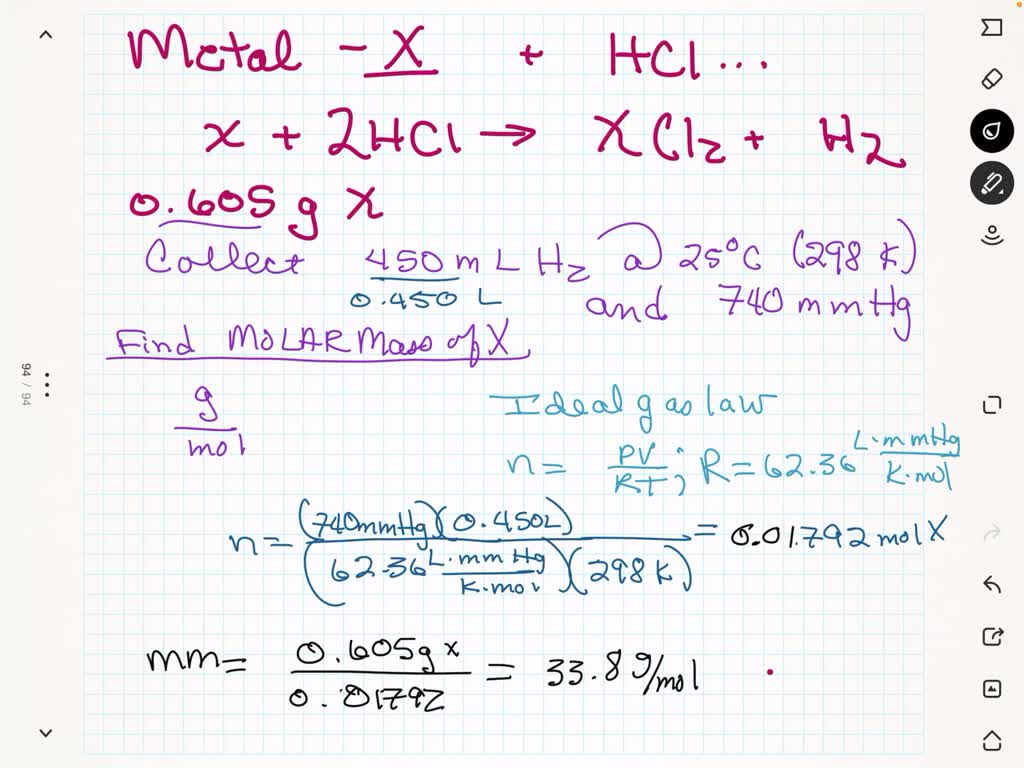 Metal - X + HCl...
x + 2HCl → XCl₂ + H₂
0.605 g X
Collect 450 mL H₂ @ 25°C (298 K)
0.450 L and 740 mmHg
Find MOLAR Mass of X
g/mol
Ideal gas law
n = PV/RT; R = 62.36 L·mmHg/K·mol
n = (740mmHg)(0.450L)/(62.36 L·mmHg/K·mol)(298 K) = 0.01792 mol X
mm = 0.605g x/0.01792 = 33.8 g/mol
94 / 94